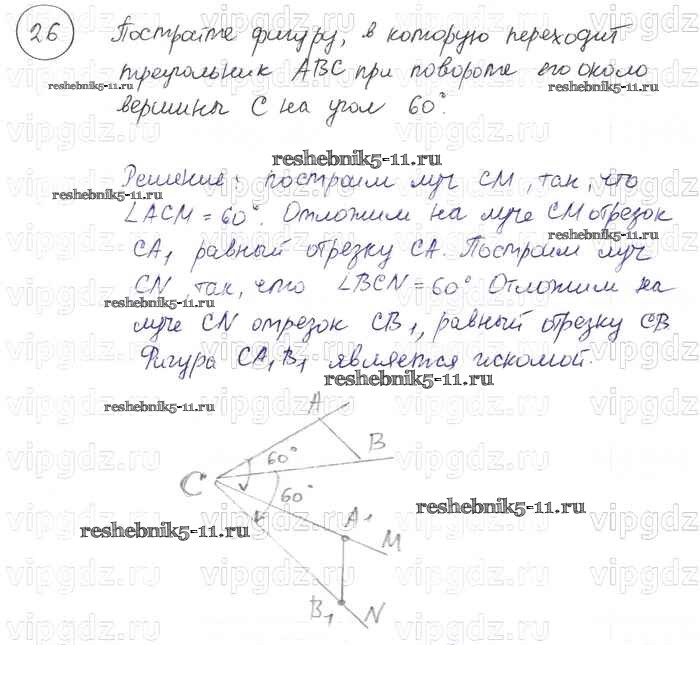 26 Постройте фигуру, в которую переходит
треугольник ABC при повороте его около
reshebnik5-11.ru reshebnik5-11.ru
вершины C на угол 60°.
reshebnik5-11.ru
Решение: построим луч CM, так, что
reshebnik5-11.ru
∠ACM = 60°. Отложим на луче CM отрезок
reshebnik5-11.ru
CA₁ равный отрезку CA. Построим луч
CN, так, что ∠BCN = 60° Отложим на
reshebnik5-11.ru
луче CN отрезок CB₁, равный отрезку CB
Фигура CA₁B₁ является искомой.
reshebnik5-11.ru
reshebnik5-11.ru
A
B
60°
C
60°
reshebnik5-11.ru
A₁
reshebnik5-11.ru
M
B₁ N
vipgdz.ru